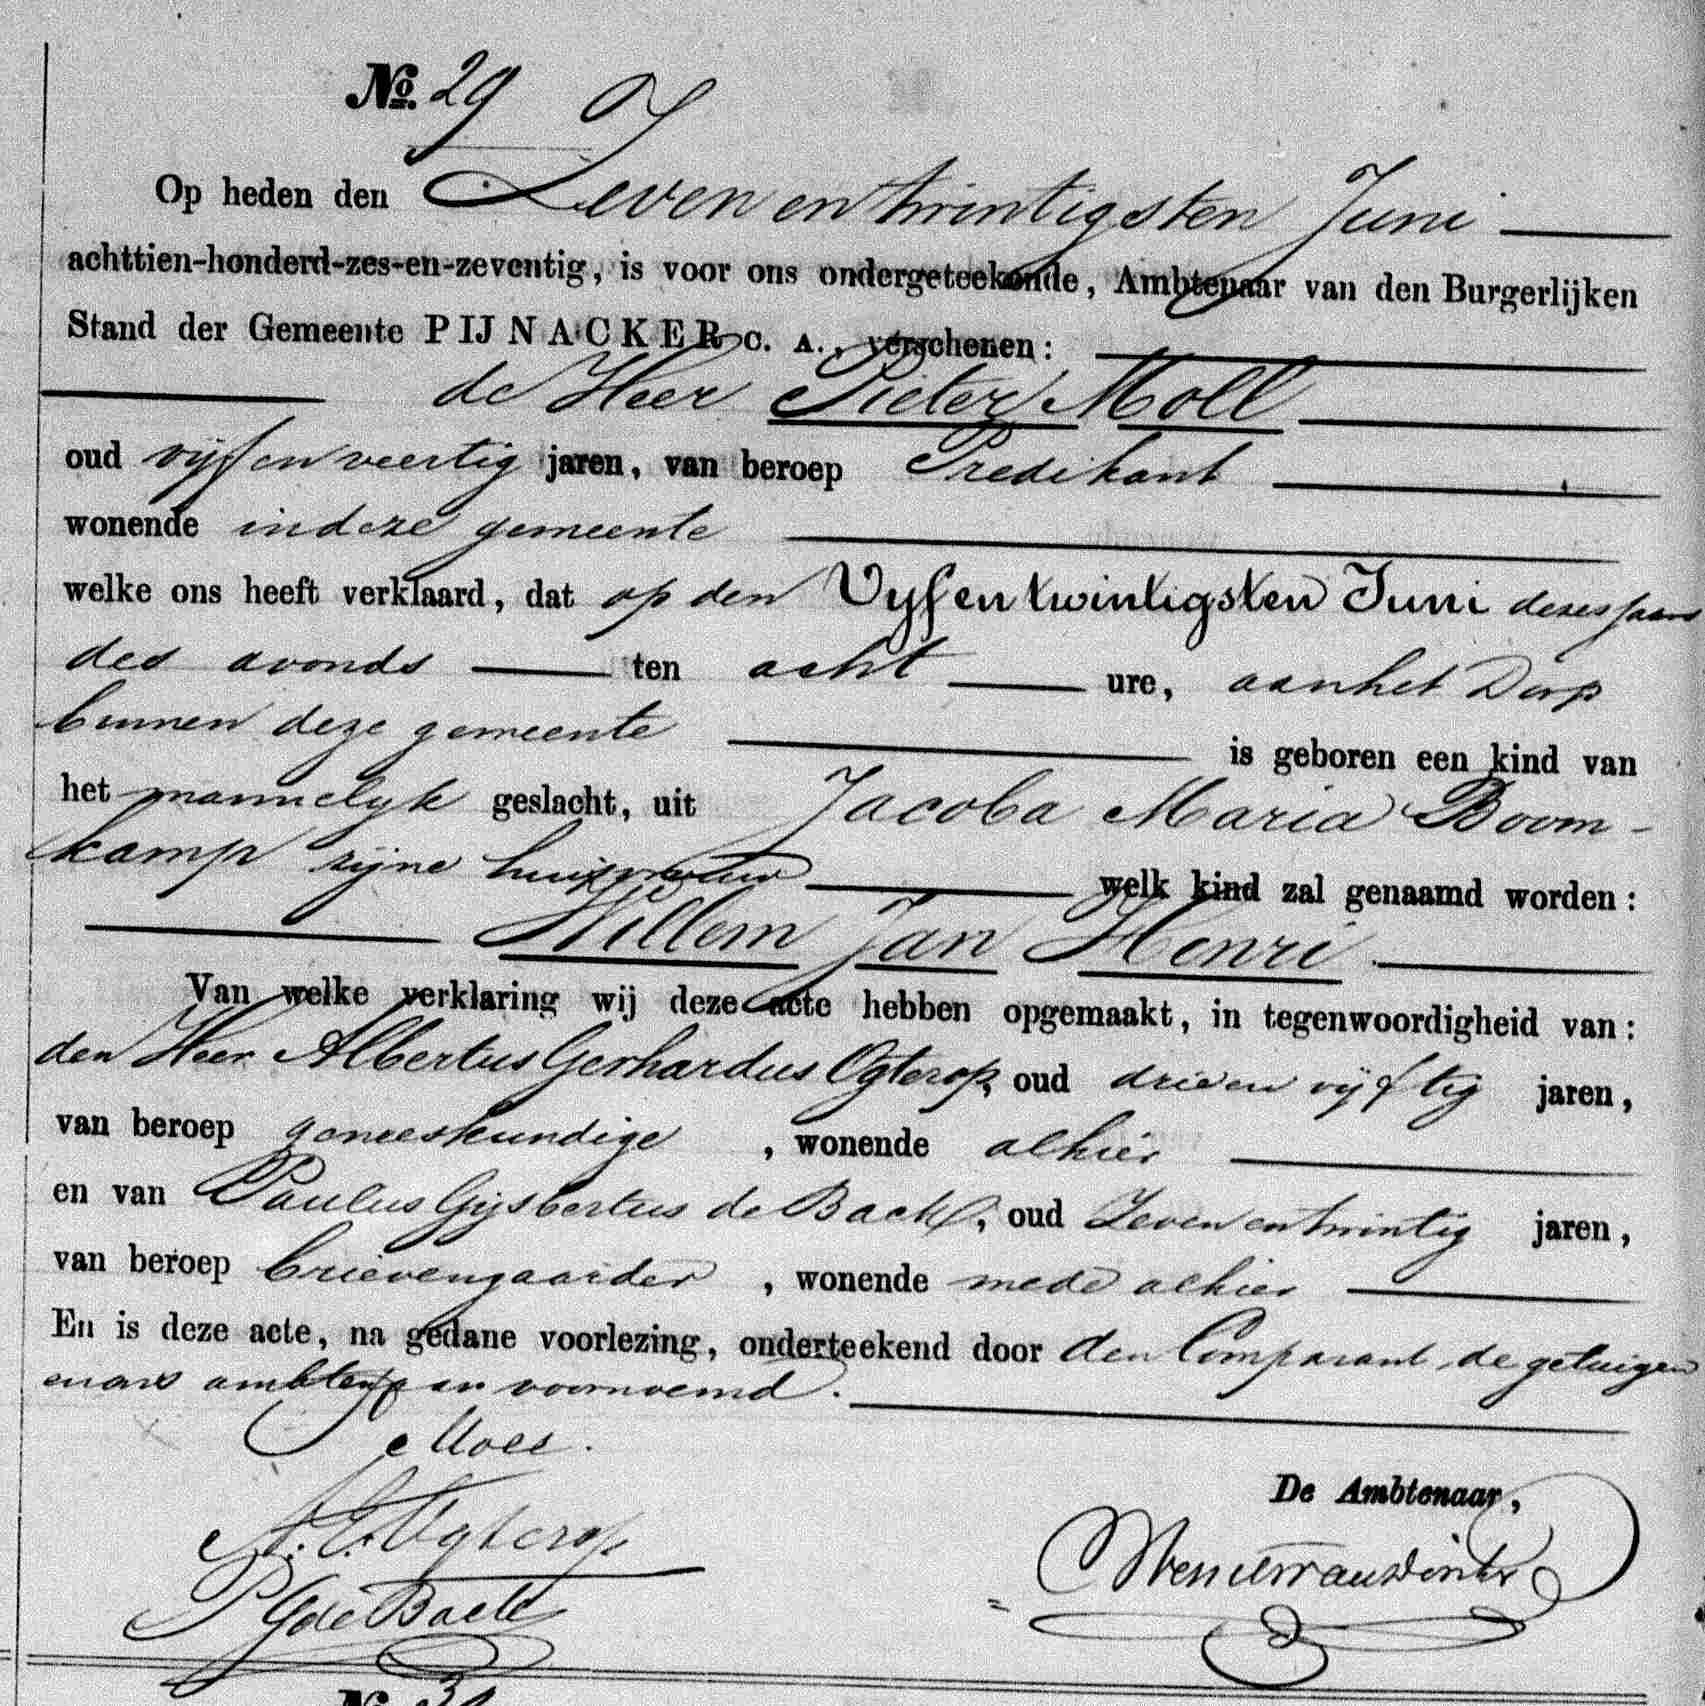 No. 29
Op heden den Zeven en twintigsten Juni
achttien-honderd-zes-en-zeventig, is voor ons ondergeteekende, Ambtenaar van den Burgerlijken
Stand der Gemeente PIJNACKER C. A., verschenen:
de Heer Pieter Moll
oud vijf en veertig jaren, van beroep Predikant
wonende in deze gemeente
welke ons heeft verklaard, dat op den Vijf en twintigsten Juni dezes jaars
des avonds ten acht ure, aan het Dorp
binnen deze gemeente is geboren een kind van
het mannelijk geslacht, uit Jacoba Maria Boom-
kamp zijne huisvrouw welk kind zal genaamd worden:
Willem Jan Henri
Van welke verklaring wij deze acte hebben opgemaakt, in tegenwoordigheid van:
den Heer Albertus Gerhardus Ogterop, oud drie en vijftig jaren,
van beroep geneeskundige, wonende alhier
en van Paulus Gijsbertus de Back, oud Zeven en twintig jaren,
van beroep brievengaarder, wonende mede alhier
En is deze acte, na gedane voorlezing, onderteekend door den Comparant, de getuigen
en ons ambtenaar voornoemd.
P Moll.
De Ambtenaar,
A. G. Ogterop
PG de Back
No. 30